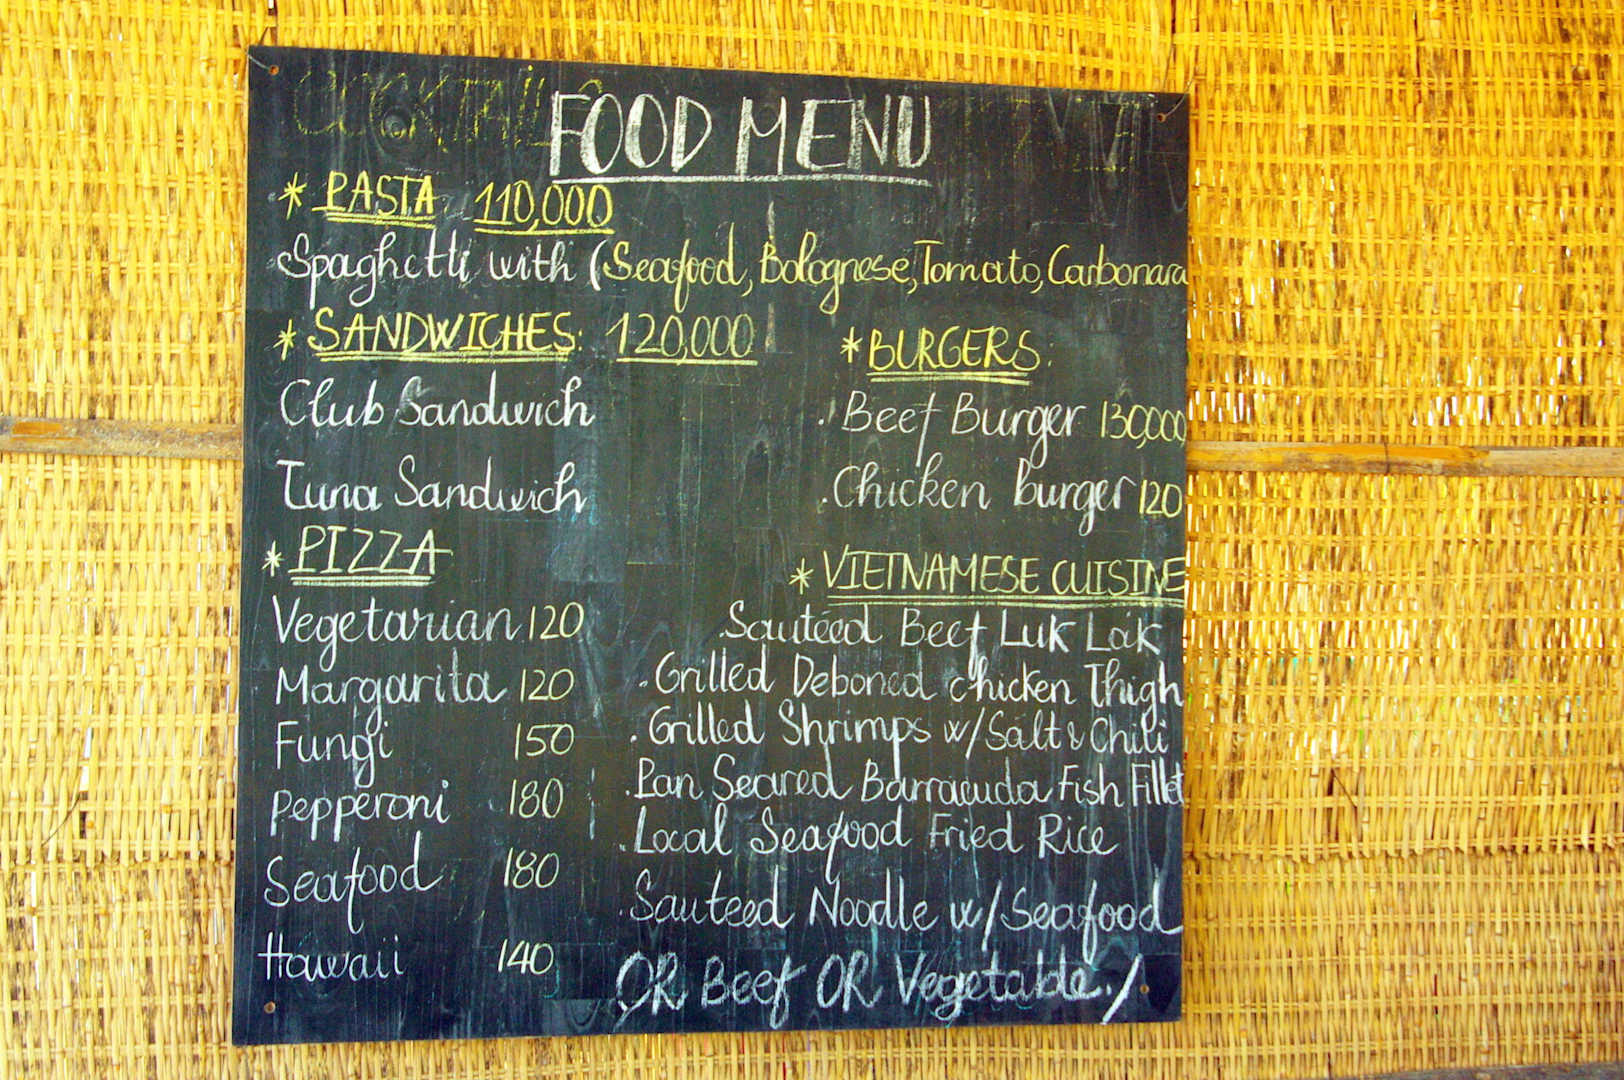 COCKTAIL
FOOD MENU
* PASTA 110,000
Spaghetti with (Seafood, Bolognese, Tomato, Carbonara
* SANDWICHES: 120,000
Club Sandwich
Tuna Sandwich
* BURGERS:
. Beef Burger 130,000
. Chicken burger 120
* PIZZA
Vegetarian 120
Margarita 120
Fungi 150
Pepperoni 180
Seafood 180
Hawaii 140
* VIETNAMESE CUISINE
. Sauteed Beef Luk Lak
. Grilled Deboned chicken Thigh
. Grilled Shrimps w/Salt & Chili
. Pan Seared Barracuda Fish Fillet
. Local Seafood Fried Rice
. Sauteed Noodle w/Seafood
OR Beef OR Vegetable./